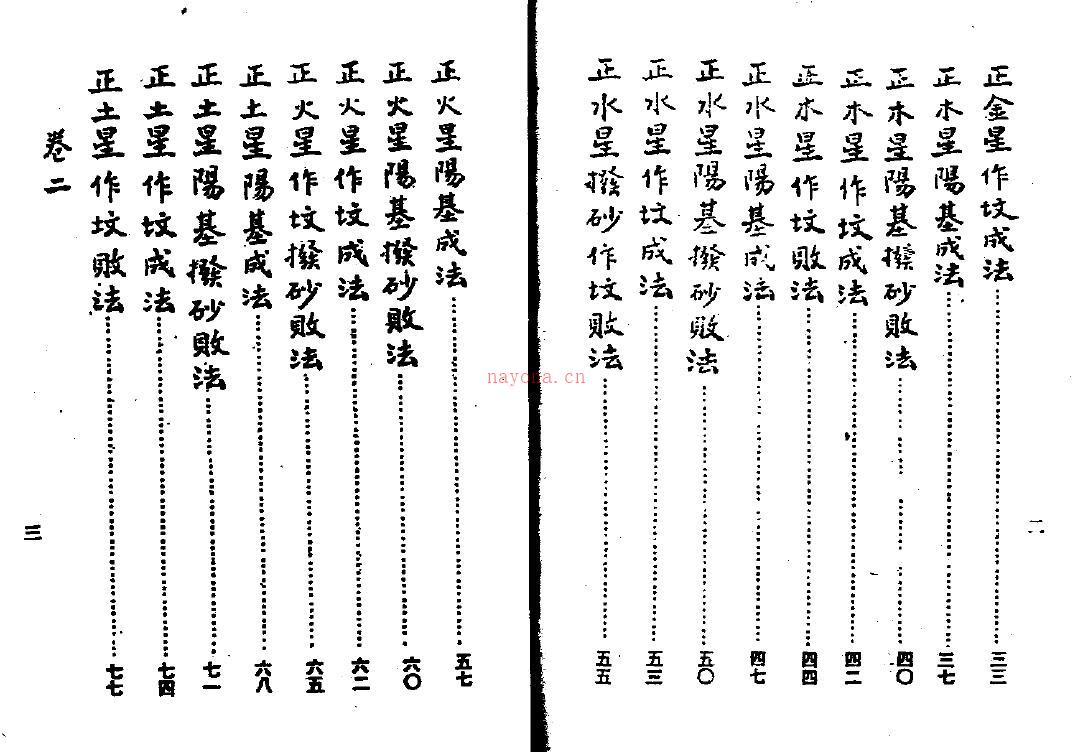 正金星作坟成法……三三
正木星陽基成法……三七
正木星陽基撥砂敗法……四〇
正木星作坟成法……四二
正木星作坟敗法……四四
正水星陽基成法……四七
正水星陽基撥砂敗法……五〇
正水星作坟成法……五三
正水星撥砂作坟敗法……五五
二
正火星陽基成法……五七
正火星陽基撥砂敗法……六〇
正火星作坟成法……六二
正火星作坟撥砂敗法……六五
正土星陽基成法……六八
正土星陽基撥砂敗法……七一
正土星作坟成法……七四
正土星作坟敗法……七七
卷二
三
nayona.cn